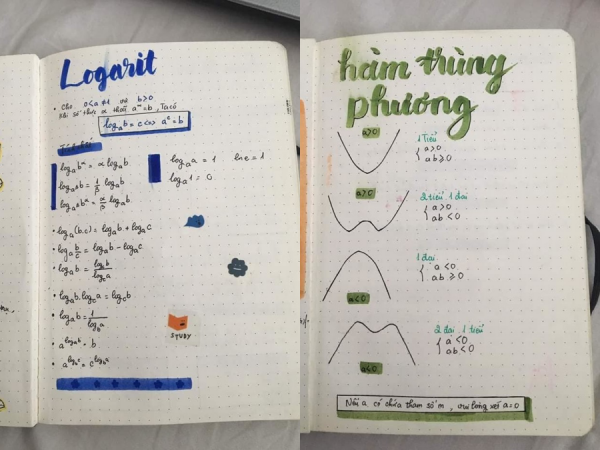 Logarit
• Cho 0<a≠1 và b>0
Khi số thực α thoả aᵅ=b, Ta có
logₐb = c <=> aᶜ = b
logₐbᵅ = α logₐb
logₐᵦb = 1/β logₐb
logₐᵦbᵅ = α/β logₐb.
logₐa = 1 lne = 1
logₐ1 = 0
• logₐ(b.c) = logₐb + logₐc
• logₐ b/c = logₐb - logₐc
• logₐb = logcb/logca
• logₐb. logca = logcb
• logₐb = 1/logba
• a^logₐb = b
• a^logbc = c^logba
STUDY
hàm trùng
phương
a>0
1 Tiểu
{ a>0
ab≥0
a>0
2 tiểu 1 đại
{ a>0
ab<0
1 đại
{ a<0
ab≥0
a<0
2 đại 1 tiểu
{ a<0
ab<0
a<0
Nếu a có chứa tham số m, vui lòng xét a=0